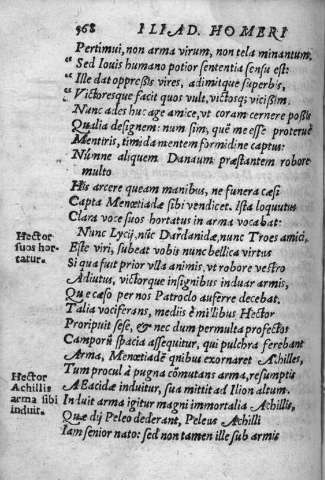 968 ILIAD. HOMERI
Pertimui, non arma virum, non tela minantum.
“ Sed Iouis humano potior sententia sensu est:
“ Ille dat oppressis vires, adimitque superbis,
“ Victoresque facit quos vult, victosq; vicissim.
Nunc ades huc age amice, vt coram cernere possis
Qualia designem: num sim, quẽ me esse proteruè
Mentiris, timida mentem formidine captus:
Núnne aliquem Danaum præstantem robore
multo
His arcere queam manibus, ne funera cæsi
Capta Menœtiadæ sibi vendicet. Ista loquutus
Clara voce suos hortatus in arma vocabat:
Hector suos hortatur.
Nunc Lycij, nũc Dardanidæ, nunc Troes amici,
Este viri, subeat vobis nunc bellica virtus
Si qua fuit prior vlla animis, vt robore vestro
Adiutus, victorque insignibus induar armis,
Quæ cæso per nos Patroclo auferre decebat.
Talia vociferans, medijs è millibus Hector
Proripuit sese, & nec dum permulta profectos
Camporũ spacia assequitur, qui pulchra ferebant
Arma, Menœtiadẽ quibus exornaret Achilles,
Hector Achillis arma sibi induit.
Tum procul à pugna cõmutans arma, resumptis
AEacidæ induitur, sua mittit ad Ilion altum.
Induit arma igitur magni immortalia Achillis,
Quæ dij Peleo dederant, Peleus Achilli
Iam senior nato: sed non tamen ille sub armis